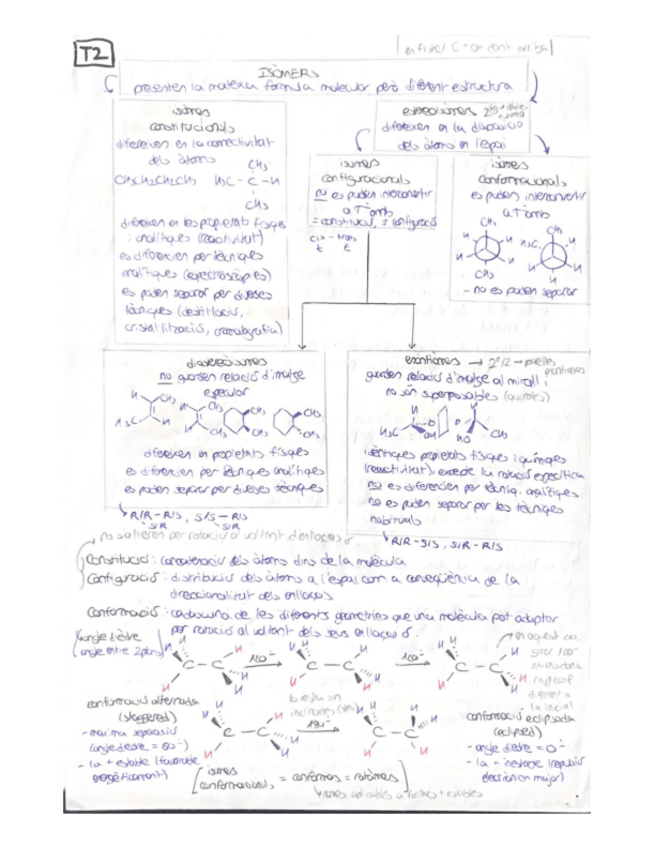 T2
ISÒMERS
presenten la mateixa fórmula molecular però diferent estructura
isòmers
constitucionals
difereixen en la connectivitat
dels àtoms
CH₃
CH₃CH₂CH₂CH₃ H₃C - C - H
CH₃
difereixen en les propietats físiques
i analítiques (reactivitat)
es diferencien per tècniques
analítiques (espectroscòpies)
es poden separar per diverses
tècniques (destil·lació,
cristal·lització, cromatografia)
estereoisòmers
difereixen en la disposició
dels àtoms en l'espai
isòmers
configuracionals
no es poden interconvertir
a T amb
= constitució, ≠ configuració
cis - trans
Z E
isòmers
conformacionals
es poden interconvertir
a T amb
CH₃
H
H₃C
CH₃
- no es poden separar
diastereoisòmers
no guarden relació d'imatge
especular
H CH₃
H₃C H
CH₃
difereixen en propietats físiques
es diferencien per tècniques analítiques
es poden separar per diverses tècniques
R/R - R/S, S/S - R/S
S/R S/R
enantiòmers → 2ⁿ/2 → parelles
enantiòmers
guarden relació d'imatge al mirall i
no són superposables (quirals)
H
H₃C OH
HO CH₃
idèntiques propietats físiques i químiques
(reactivitat), excepte la rotació específica
no es diferencien per tècniq. analítiques
no es poden separar per les tècniques
habituals
R/R - S/S, S/R - R/S
no s'alteren per rotació al voltant d'enllaços σ
Constitució: concatenació dels àtoms dins de la molècula
Configuració: distribució dels àtoms a l'espai com a conseqüència de la
direccionalitat dels enllaços
Conformació: cadascuna de les diferents geometries que una molècula pot adoptar
per rotació al voltant dels seus enllaços σ.
angle dièdre
(angle entre 2 plans)
H C - C H 120° H C - C H 120° H C - C H
en aquest cas,
girar 120°
conformació alternada
(staggered)
- màxima separació
(angle dièdre = 60°)
- la + estable (favorable
energèticament)
H C - C H 180° H C - C H
conformació eclipsada
(eclipsed)
- angle dièdre = 0°
- la - inestable (repulsió
electrònica major)
[isòmers
conformacionals = confòrmers = rotàmers]